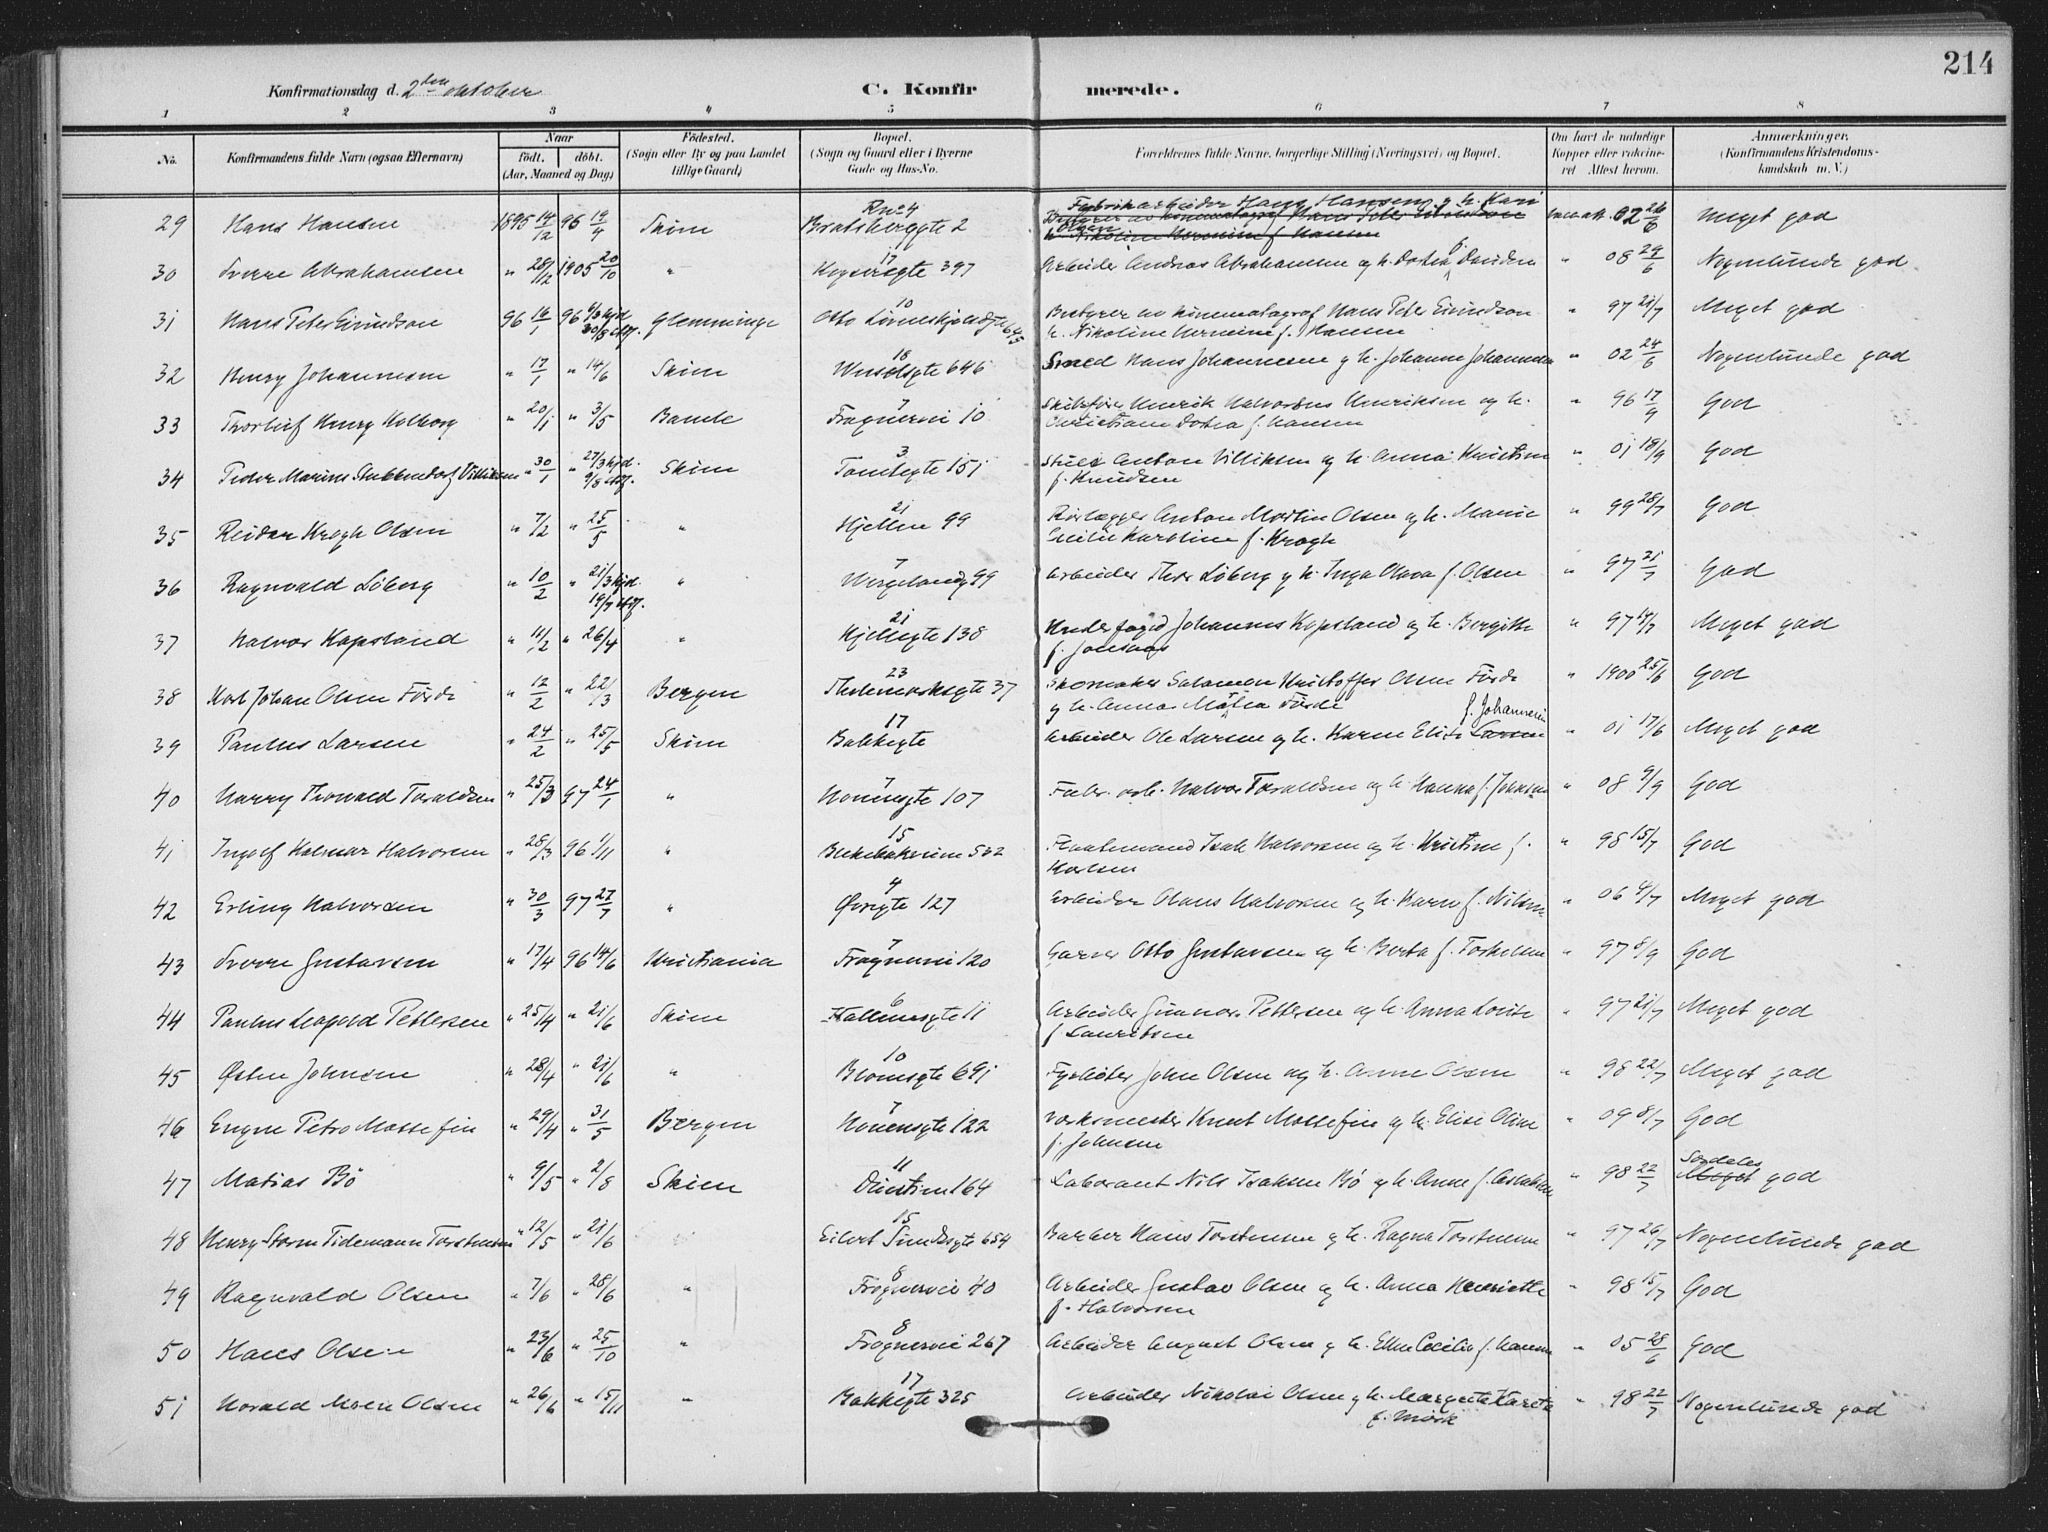 214
Konfirmationsdag d. 2den oktober C. Konfirmerede.
1 2 3 4 5 6 7 8
No. Konfirmandens fulde Navn (ogsaa Efternavn) Naar födt. döbt. (Aar, Maaned og Dag) Födested. (Sogn eller By og paa Landet tillige Gaard) Bopæl. (Sogn og Gaard eller i Byerne Gade og Hus-No. Forældrenes fulde Navne, borgerlige Stilling (Næringsvei) og Bopæl. Om havt de naturlige Kopper eller vakcineret. Attest herom. Anmærkninger. (Konfirmandens Kristendomskundskab m. V.)
29 Hans Hansen 1895 14/12 96 19/4 Skien Rno 4 Bratsberggte 2 Fabrikarbeider Hans Hansen og h. Kari Olsen 02 26/6 Meget god
30 Sverre Abrahamsen " 28/12 1905 20/10 " 17 397 Arbeider Andreas Abrahamsen og h. " 08 29/6 Nogenlunde god
31 Hans Peter Eivindson 96 16/1 96 6/3 hjd. 30/8 Glemminge 10 Bestyrer av kinematograf Hans Peter Eivindson h. Nikoline f. Hansen " 97 21/7 Meget god
32 Henry Johannesen " 17/1 " 14/6 Skien 18 646 Smed Hans Johannesen og h. Johanne Johannesen " 02 24/6 Nogenlunde god
33 Thorleif Henry Kolborg " 20/1 " 3/5 Bamle 7 Frognervei 10 Henrik Halvorsen Henriksen og h. f. Hansen " 96 17/9 God
34 Peder Marius Villiksen " 30/1 " 27/3 hjd. 9/8 Skien 3 151 Anton Villiksen og h. Anna Kristine f. Knudsen " 01 18/9 God
35 Reidar Krogh Olsen " 7/2 " 25/5 " 21 Hjellen 99 Anton Martin Olsen og h. Marie Karoline f. Krogh " 99 28/7 God
36 Ragnvald Löberg " 10/2 " 21/3 hjd. 19/7 " 7 99 Arbeider Thor Löberg og h. Inga Olava f. Olsen " 97 21/7 God
37 Halvor Kopsland " 11/2 " 26/4 " 21 Hjellegte 138 Johannes Kopsland og h. Bergitte " 97 14/7 Meget god
38 Karl Johan Olsen Förde " 12/2 " 22/3 Bergen 23 Thelemarksgte 37 Skomaker Salamon Kristoffer Olsen Förde og h. Anna Förde " 1900 25/6 God
39 Paulus Larsen " 24/2 " 25/5 Skien 17 Bakkegte Arbeider Ole Larsen og h. Karen Elise Larsen f. Johannesen " 01 17/6 Meget god
40 Harry Thorvald Toraldsen " 25/3 97 24/1 " 7 Hovensgte 107 Fabr. arb. Halvor Toraldsen og h. Hanna f. Johnsen " 08 9/9 God
41 Ingolf Halvorsen " 28/3 96 1/11 " 15 532 Isak Halvorsen og h. Kristine f. Karlsen " 98 15/7 God
42 Erling Halvorsen " 30/3 97 27/7 " 4 Øvregte 127 Arbeider Olaus Halvorsen og h. Karen f. Nilsen " 06 4/7 Meget god
43 Sverre Gustavsen " 17/4 96 14/6 Kristiania 7 Frognervei 120 Garver Otto Gustavsen og h. Berta f. " 97 8/9 God
44 Paulus Leopold Pettersen " 25/4 " 21/6 Skien 6 11 Arbeider Gunnar Pettersen og h. Anna Lovise f. Lauritsen " 97 21/7 Meget god
45 Østen Johnsen " 28/4 " 21/6 " 10 Blomsgte 691 Fyrböter John Olsen og h. Anne Olsen " 98 22/7 Meget god
46 Petro Mossefin " 29/4 " 31/5 Bergen 7 Hovensgte 122 Værksmester Knut Mossefin og h. Elise Oline f. Johnsen " 09 8/7 God
47 Matias Bö " 9/5 " 2/8 Skien 11 164 Laborant Nils Isaksen Bö og h. Anne f. Aslaksen " 98 22/7 Særdeles Meget god
48 Henry Storm Tidemann Torstensen " 12/5 " 21/6 " 15 Eilert Sundtsgte 654 Barber Hans Torstensen og h. Ragna Torstensen " 97 26/7 Nogenlunde god
49 Ragnvald Olsen " 7/6 " 28/6 " 8 Frognervei 40 Arbeider Gustav Olsen og h. Anna Henriette f. Halvorsen " 98 15/7 God
50 Hans Olsen " 23/6 " 25/10 " 8 Frognervei 267 Arbeider August Olsen og h. Ellen Cecilie f. Hansen " 05 28/6 God
51 Harald Olsen " 26/6 " 15/11 " 17 Bakkegte 325 Arbeider Nikolai Olsen og h. Margrete f. Mörk " 98 22/7 Nogenlunde god